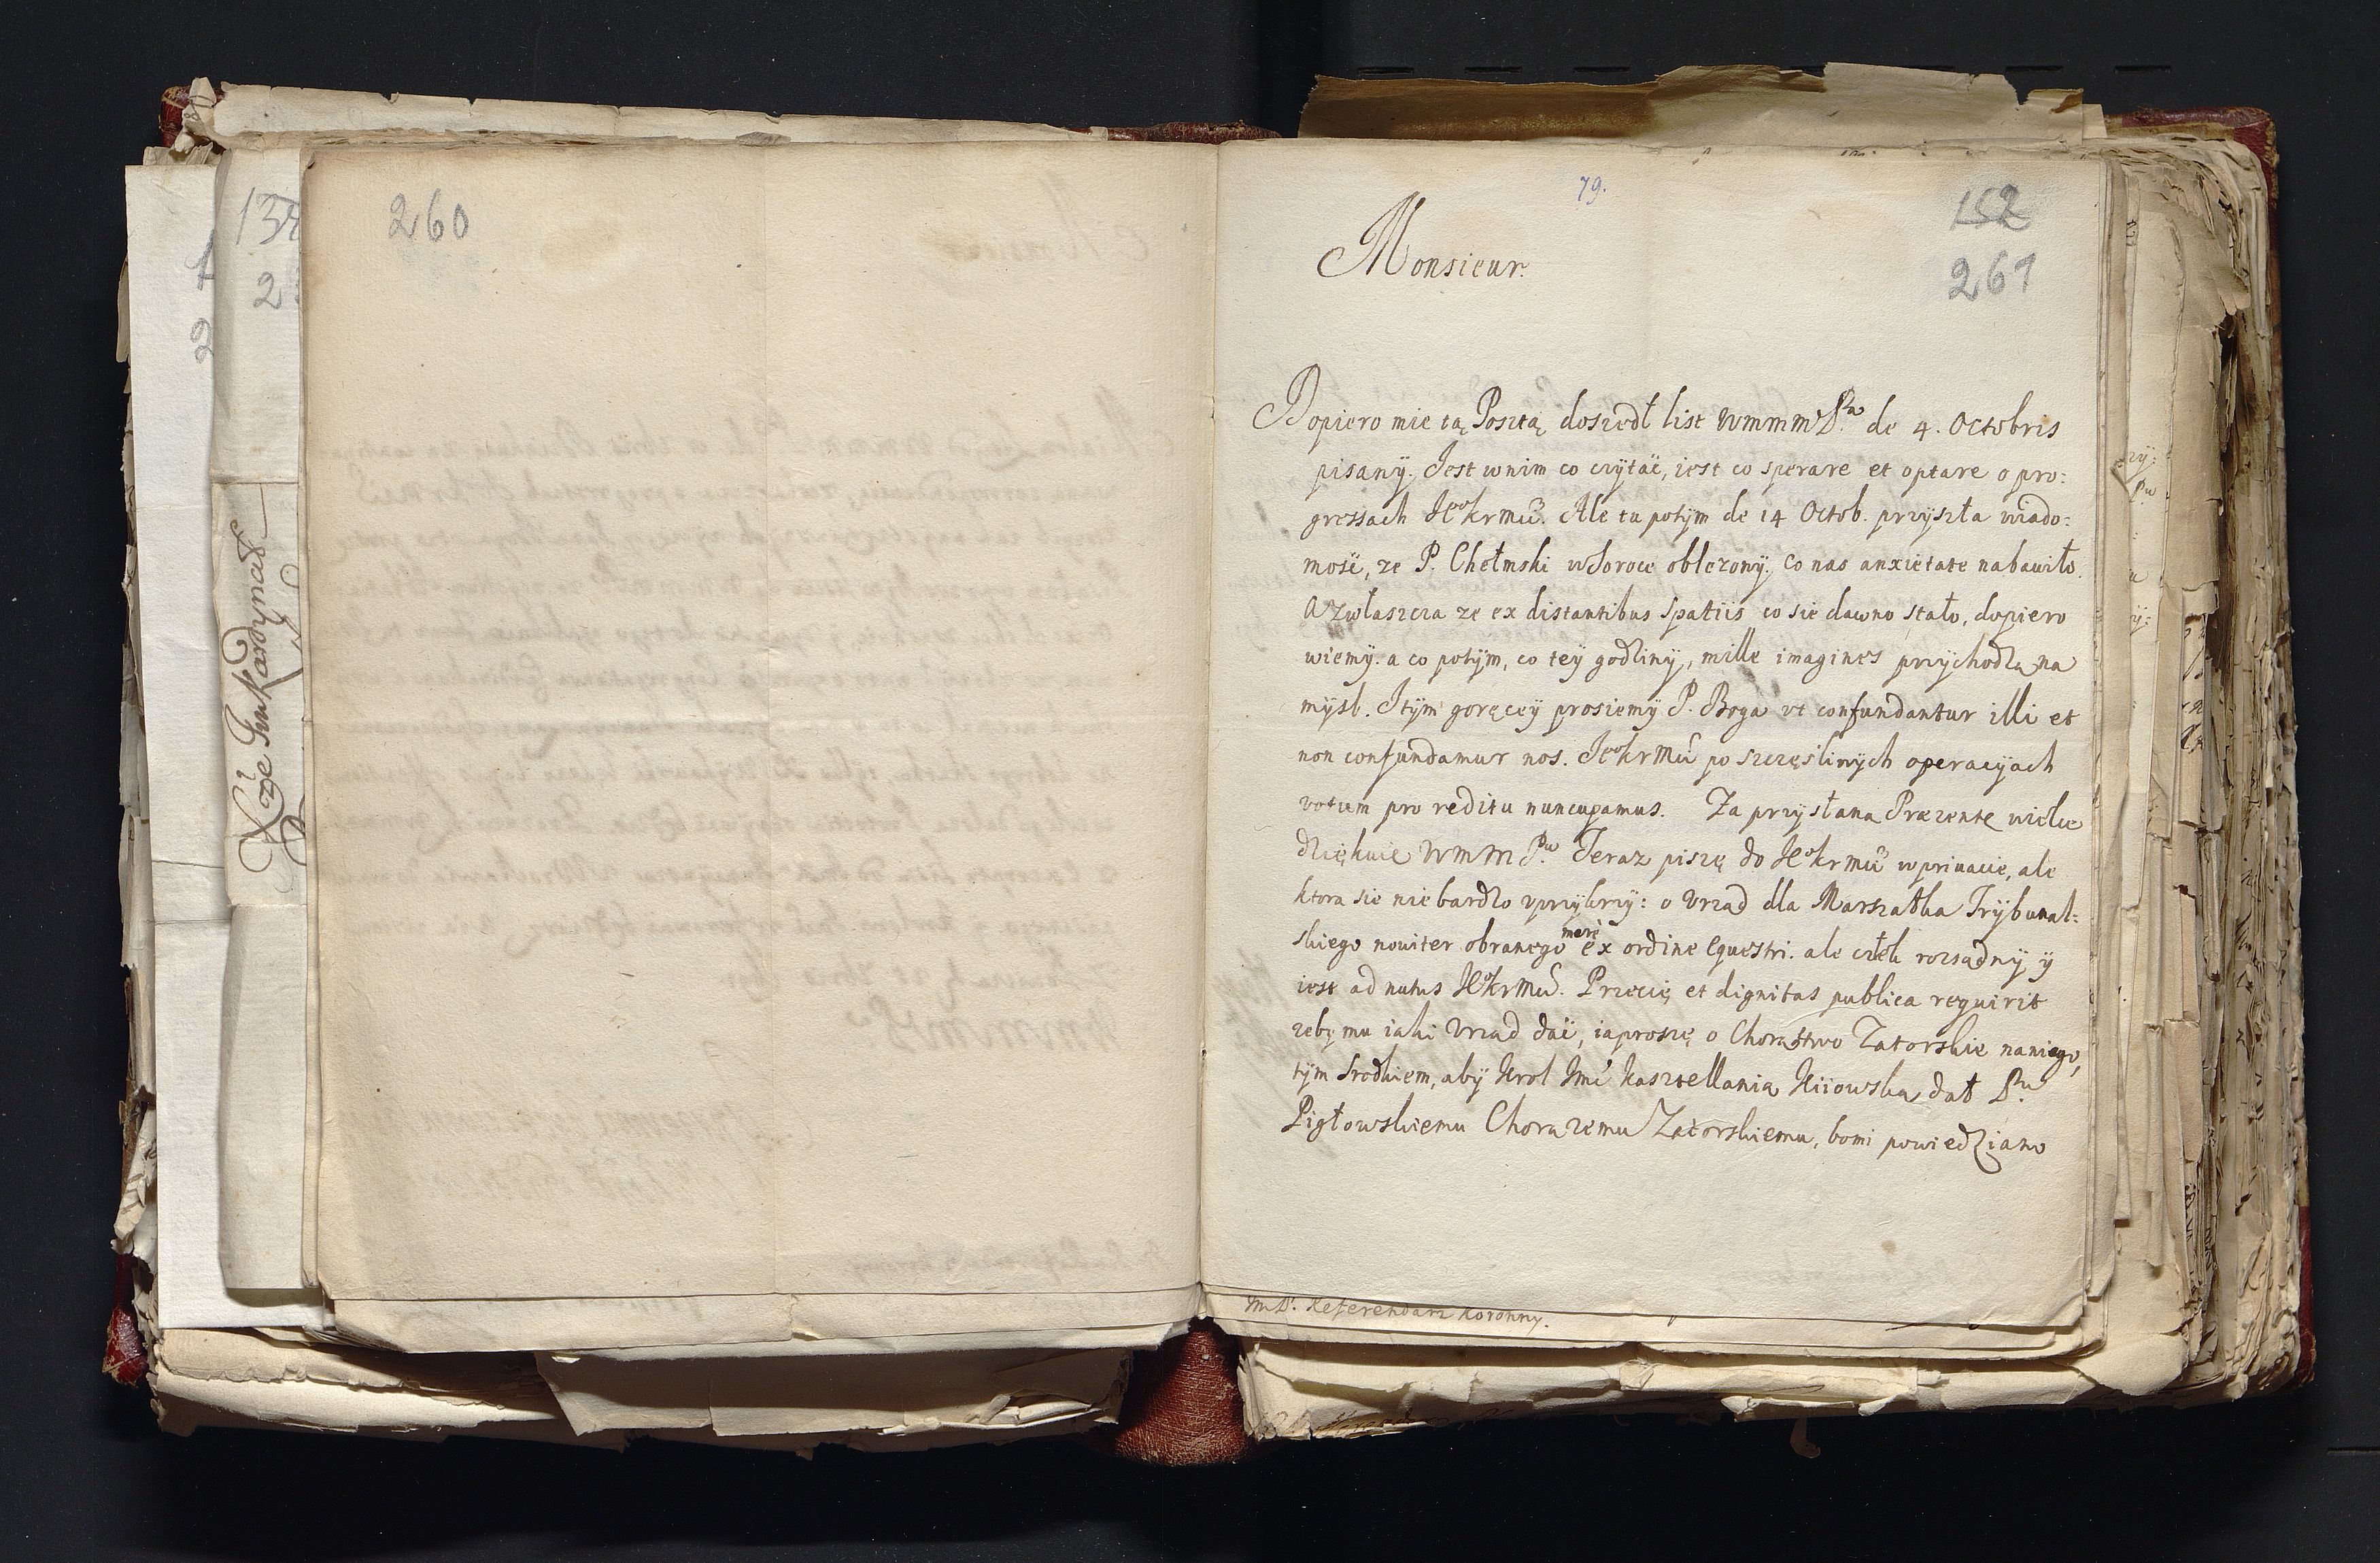 260
79.
152
261
Monsieur.
Dopiero mie tą Posztą doszedł list Wmmm Pa de 4. Octobris
pisany. Jest wnim co czytać, iest co sperare et optare o pro:
gressach JeoKrmci. Ale tu potym de 14 Octob. przyszła wiado:
mość, ze P. Chełmski w Soroce oblezony. Co nas anxietate nabawiło.
A zwłaszcza ze ex distantibus spatiis co sie dawno stało, dopiero
wiemy. a co potym, co tey godziny, mille imagines przychodzą na
mysl. Itym goręcey prosiemy P. Boga vt confundantur illi et
non confundamur nos. JeoKrMci po szczęsliwych operacyach
votum pro reditu nuncupamus. Za przysłaną Præzentę wielce
dziękuię WmmPu. Teraz piszę do JeoKrmci wpriuacie, ale
ktora sie nie bardzo vprzykrzy: o Vrzad dla Marszałka Trybunal:
skiego nouiter obranego merè ex ordine equestri. ale człek rozsądny y
iest ad nutus JeoKrmci. Przecię et dignitas publica requirit
zeby mu iaki Vrzad dać, iaproszę o Chorąstwo Zatorskie naniego,
tym srodkiem, aby Krol Jmć kasztellanią Kiiowską dał Pu
Pigłowskiemu Chorązemu Zatorskiemu, bomi powiedziano
JmP. Referendarz Koronny.
Xże Jmć Kardynał